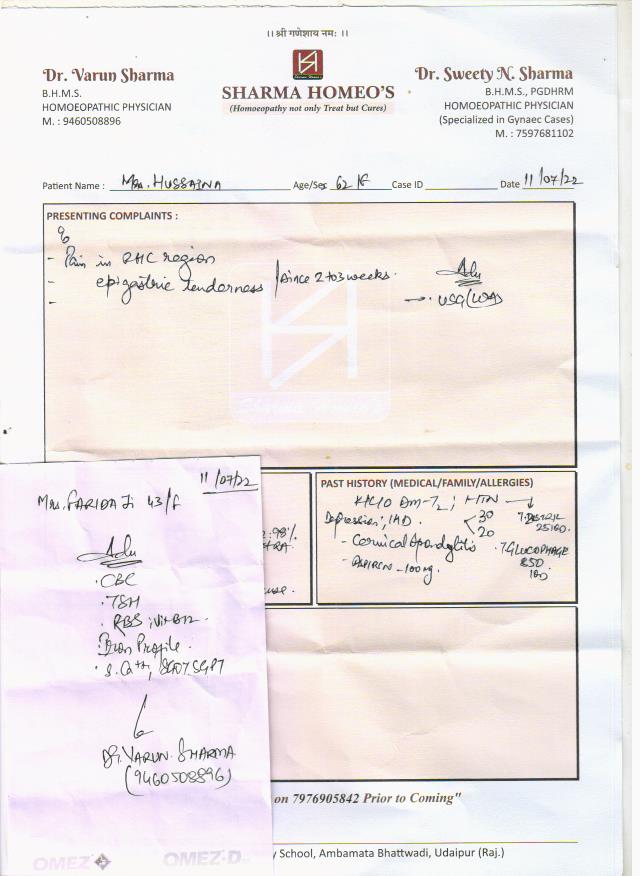 ।। श्री गणेशाय नमः ।।
Dr. Varun Sharma
B.H.M.S.
HOMOEOPATHIC PHYSICIAN
M. : 9460508896
SHARMA HOMEO'S
(Homoeopathy not only Treat but Cures)
Dr. Sweety N. Sharma
B.H.M.S., PGDHRM
HOMOEOPATHIC PHYSICIAN
(Specialized in Gynaec Cases)
M. : 7597681102
Patient Name : Mrs. HUSSAINA Age/Sex 62/F Case ID Date 11/07/22
PRESENTING COMPLAINTS :
c/o
- Pain in RHC region
- epigastric tenderness / since 2 to 3 weeks.
-
Adv
→ USG (W/A)
Sharma Homeo's
PAST HISTORY (MEDICAL/FAMILY/ALLERGIES)
K/C/O DM-T2 ; HTN →
Depression, IHD < 30
20
- Cervical Spondylitis
- ASPIRIN - 100mg.
T. GLUCOPHAGE
850
:98%
11/07/22
Mrs. FARIDA Ji 43/F
Adv
· CBC
· TSH
· RBS ; Vit B12.
· Iron Profile.
· S. Ca++, SGOT, SGPT
Dr. VARUN SHARMA
(9460508896)
OMEZ
OMEZ-D
on 7976905842 Prior to Coming"
y School, Ambamata Bhattwadi, Udaipur (Raj.)